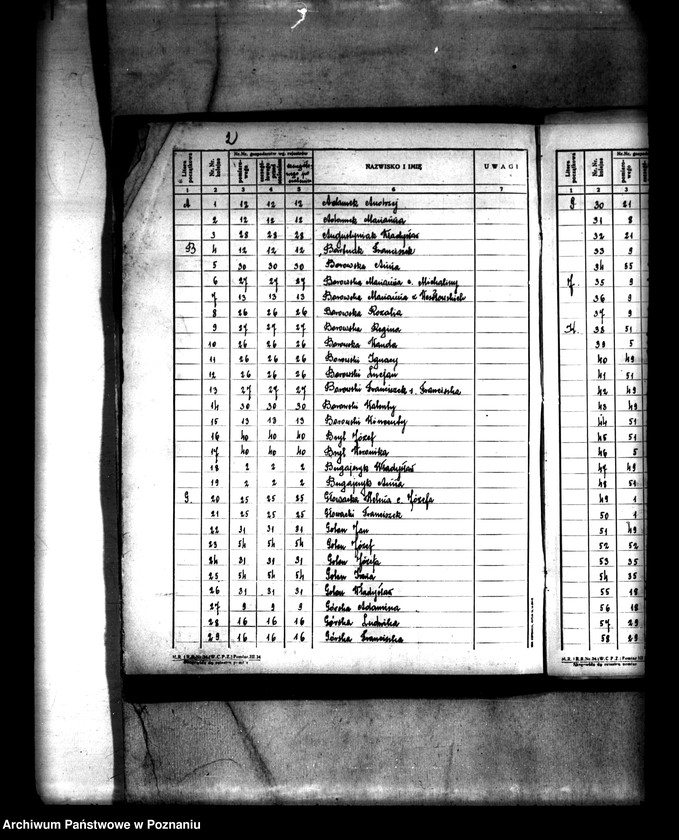 2
Litera początkowa | Nr. Nr. kolejne | Nr. Nr. gospodarstw wg. rejestrów | NAZWISKO I IMIĘ | UWAGI
1 2 3 4 5 6 7
A 1 12 12 12 Adamek Andrzej
2 12 12 12 Adamek Marianna
3 28 28 28 Augustyniak Władysław
B 4 12 12 12 Franciszek
5 30 30 30 Borowska Anna
6 27 27 27 Borowska Marianna c. Michaliny
7 13 13 13 Borowska Marianna z
8 26 26 26 Borowska Rozalia
9 27 27 27 Borowska Regina
10 26 26 26 Borowska Wanda
11 26 26 26 Borowski Ignacy
12 26 26 26 Borowski Lucjan
13 27 27 27 Borowski Franciszek s. Franciszka
14 30 30 30 Borowski Walenty
15 13 13 13 Borowski Wincenty
16 40 40 40 Bryl Józef
17 40 40 40 Bryl Weronika
18 2 2 2 Bugajczyk Władysław
19 2 2 2 Bugajczyk Anna
G 20 25 25 25 Głowacka c. Józefa
21 25 25 25 Głowacki Franciszek
22 31 31 31 Golen Jan
23 54 54 54 Golen Józef
24 31 31 31 Golen Józefa
25 54 54 54 Golen
26 31 31 31 Golen Władysław
27 9 9 9 Górska Adamina
28 16 16 16 Górska Ludwika
29 16 16 16 Górska Franciszka
1 2 3
G 30 21
31 8
32 21
33 9
34 55
J 35 9
36 9
37 9
K 38 51
39 5
40 49
41 51
42 49
43 49
44 51
45 51
46 5
47 49
48 51
49 1
50 1
51 49
52 52
53 35
54 35
55 18
56 18
57 29
58 29
Archiwum Państwowe w Poznaniu